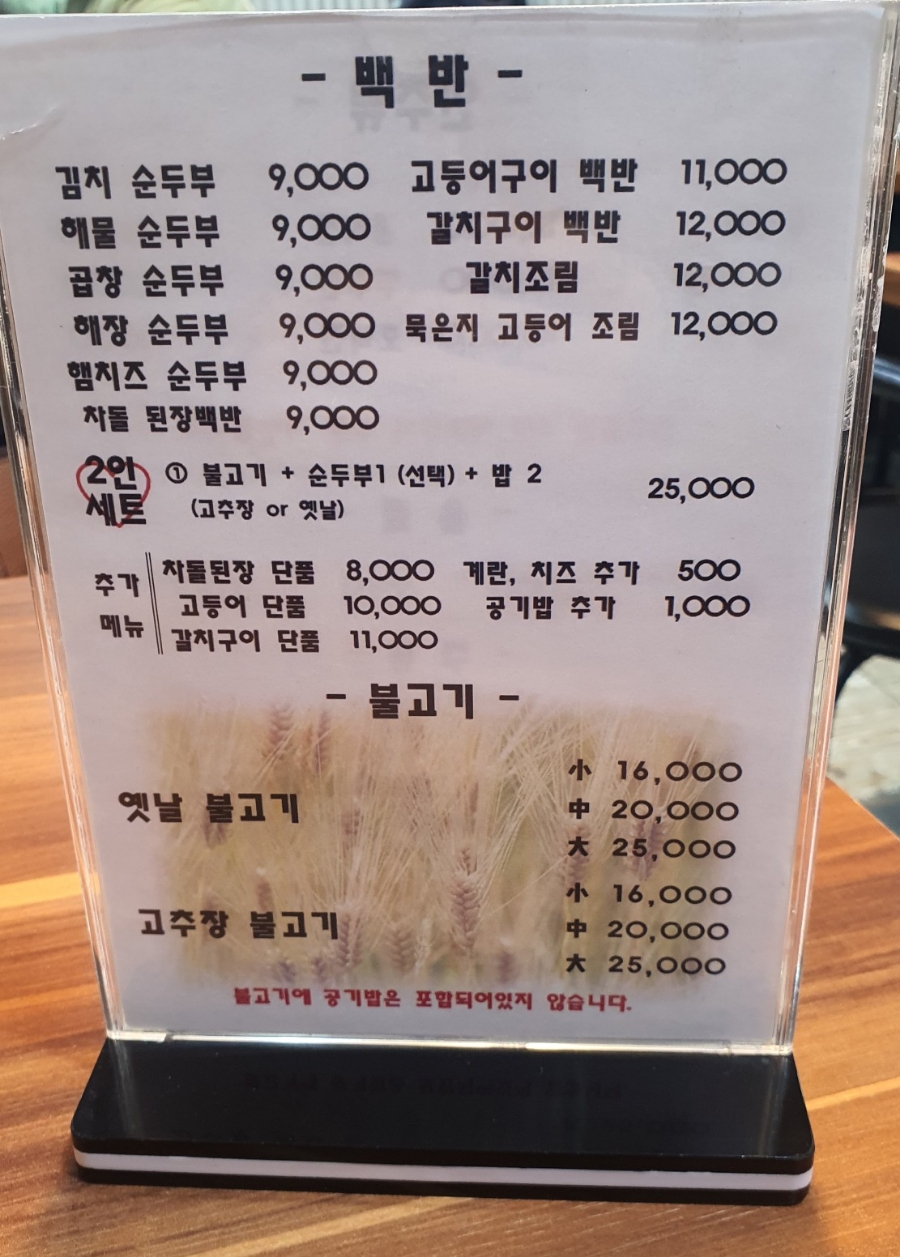 - 백 반 -
김치 순두부 9,000 고등어구이 백반 11,000
해물 순두부 9,000 갈치구이 백반 12,000
곱창 순두부 9,000 갈치조림 12,000
해장 순두부 9,000 묵은지 고등어 조림 12,000
햄치즈 순두부 9,000
차돌 된장백반 9,000
2인 세트 ① 불고기 + 순두부1 (선택) + 밥 2 25,000
(고추장 or 옛날)
추가 메뉴
차돌된장 단품 8,000 계란, 치즈 추가 500
고등어 단품 10,000 공기밥 추가 1,000
갈치구이 단품 11,000
- 불고기 -
옛날 불고기
小 16,000
中 20,000
大 25,000
고추장 불고기
小 16,000
中 20,000
大 25,000
불고기에 공기밥은 포함되어있지 않습니다.